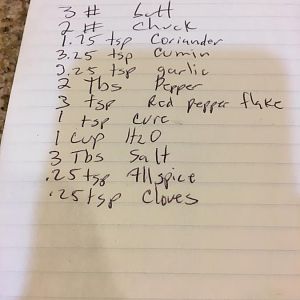 3 # butt
2 # chuck
1.25 tsp Coriander
3.25 tsp Cumin
2.25 tsp garlic
2 Tbs Pepper
3 tsp Red pepper flake
1 tsp cure
1 cup H2O
3 Tbs Salt
.25 tsp Allspice
.25 tsp Cloves